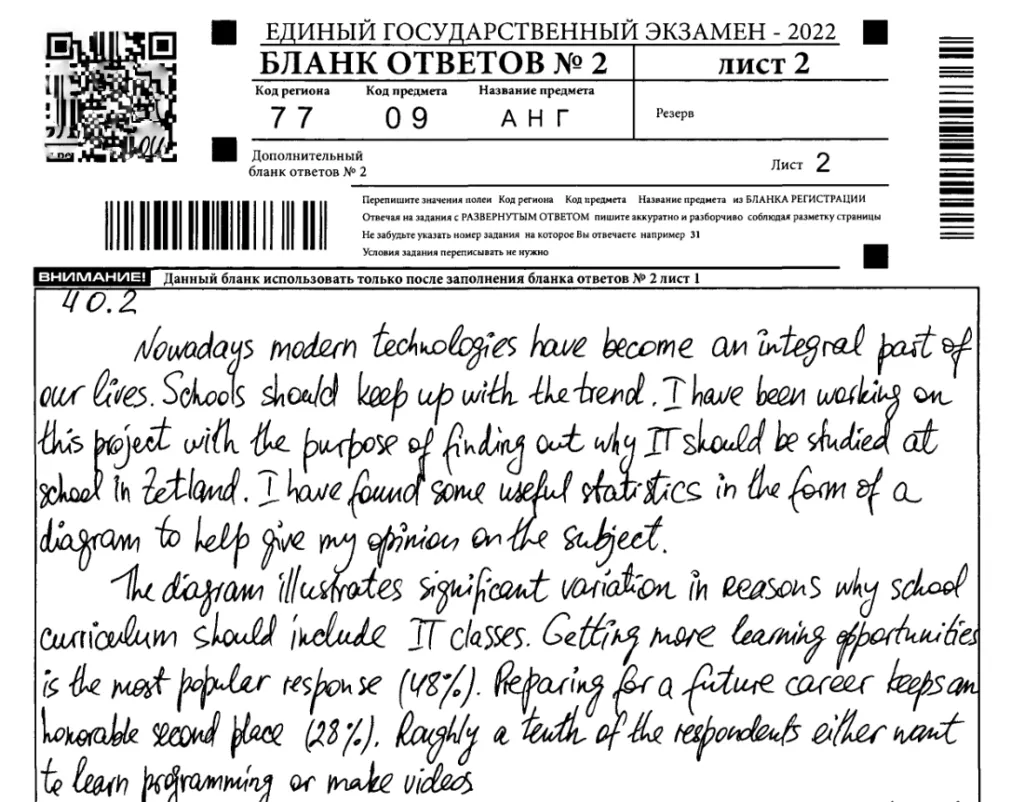 ЕДИНЫЙ ГОСУДАРСТВЕННЫЙ ЭКЗАМЕН - 2022
БЛАНК ОТВЕТОВ № 2 лист 2
Код региона Код предмета Название предмета
Резерв
77 09 АНГ
Дополнительный
бланк ответов № 2
Лист 2
Перепишите значения полей Код региона Код предмета Название предмета из БЛАНКА РЕГИСТРАЦИИ
Отвечая на задания с РАЗВЕРНУТЫМ ОТВЕТОМ пишите аккуратно и разборчиво соблюдая разметку страницы
Не забудьте указать номер задания на которое Вы отвечаете например 31
Условия задания переписывать не нужно
ВНИМАНИЕ! Данный бланк использовать только после заполнения бланка ответов № 2 лист 1
40.2
Nowadays modern technologies have become an integral part of
our lives. Schools should keep up with the trend. I have been working on
this project with the purpose of finding out why IT should be studied at
school in Zetland. I have found some useful statistics in the form of a
diagram to help give my opinion on the subject.
The diagram illustrates significant variation in reasons why school
curriculum should include IT classes. Getting more learning opportunities
is the most popular response (48%). Preparing for a future career keeps an
honorable second place (28%). Roughly a tenth of the respondents either want
to learn programming or make videos